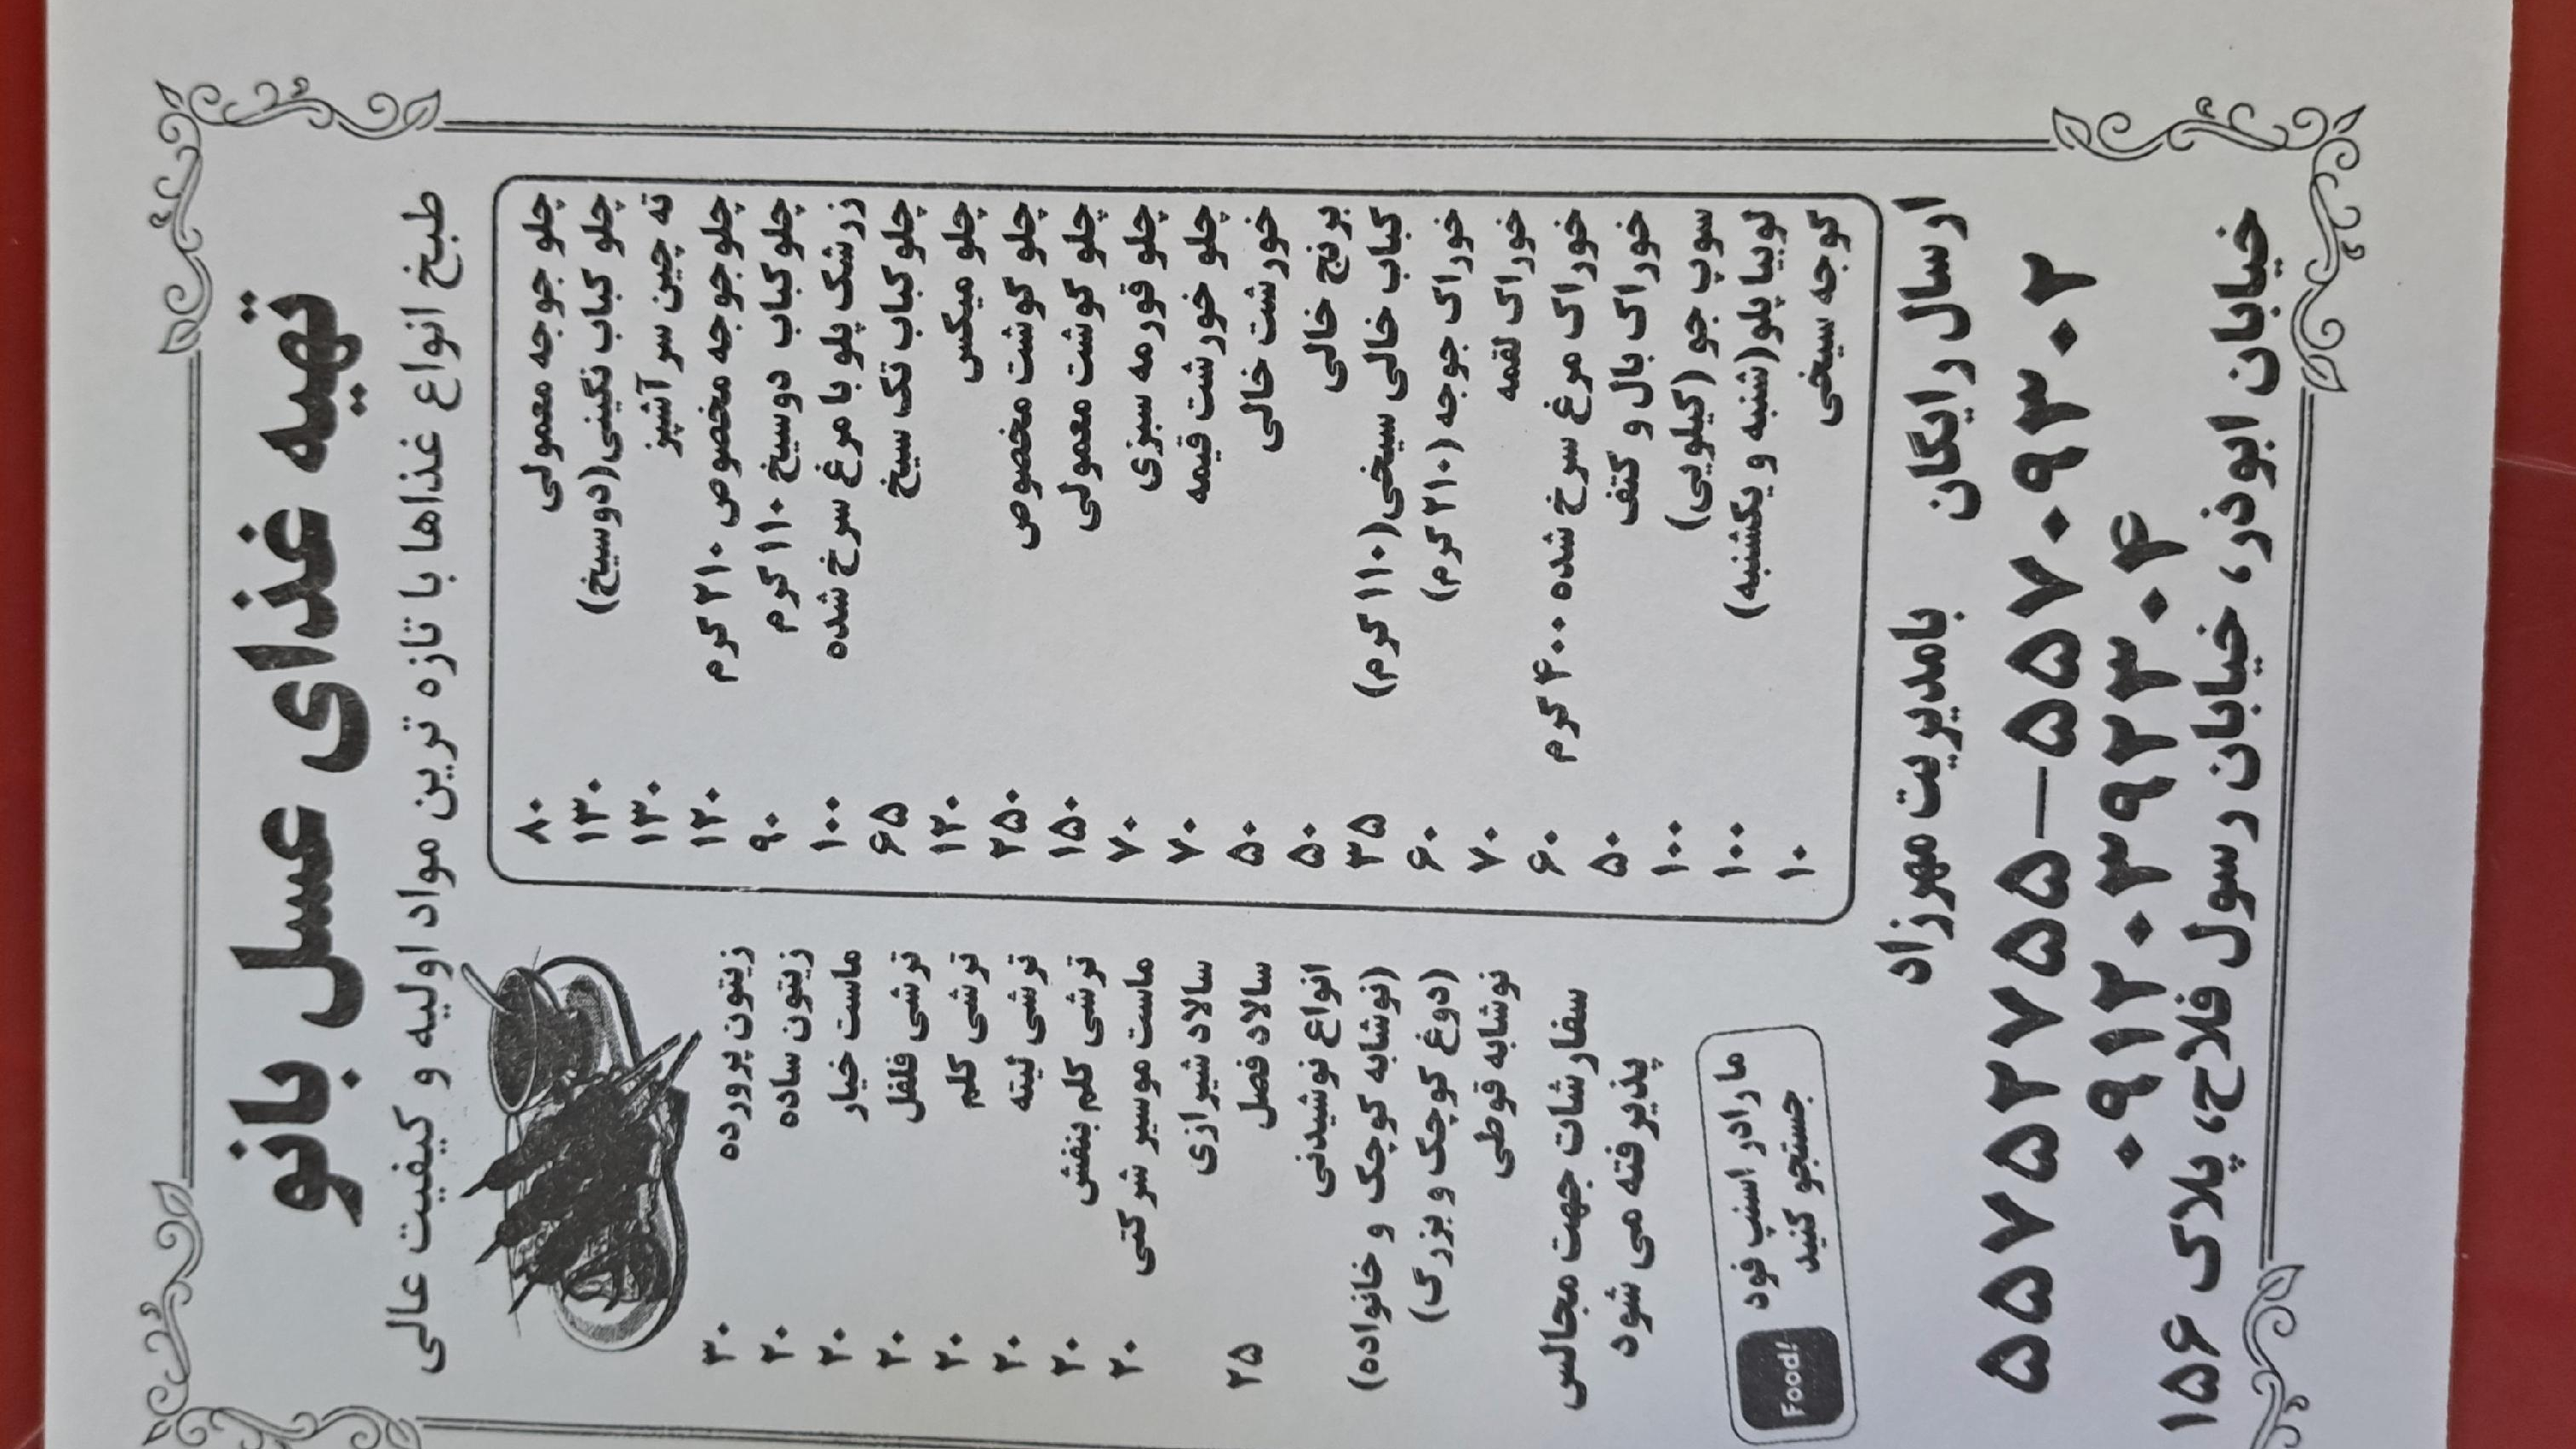 تهیه غذای عسل بانو
طبخ انواع غذاها با تازه ترین مواد اولیه و کیفیت عالی
چلو جوجه معمولی ۸۰
چلو کباب نگینی (دوسیخ) ۱۳۰
ته چین سرآشپز ۱۳۰
چلو جوجه مخصوص ۲۱۰ گرم ۱۲۰
چلو کباب دوسیخ ۱۱۰ گرم ۹۰
زرشک پلو با مرغ سرخ شده ۱۰۰
چلو کباب تک سیخ ۶۵
چلو میکس ۱۲۰
چلو گوشت مخصوص ۲۵۰
چلو گوشت معمولی ۱۵۰
چلو قورمه سبزی ۷۰
چلو خورشت قیمه ۷۰
خورشت خالی ۵۰
برنج خالی ۵۰
کباب خالی سیخی (۱۱۰ گرم) ۳۵
خوراک جوجه (۲۱۰ گرم) ۶۰
خوراک لقمه ۷۰
خوراک مرغ سرخ شده ۴۰۰ گرم ۶۰
خوراک بال و کتف ۵۰
سوپ جو (کیلویی) ۱۰۰
لوبیا پلو (شنبه و یکشنبه) ۱۰۰
گوجه سیخی ۱۰
زیتون پرورده ۳۰
زیتون ساده ۲۰
ماست خیار ۲۰
ترشی فلفل ۲۰
ترشی کلم ۲۰
ترشی لیته ۲۰
ترشی کلم بنفش ۲۰
ماست موسیر شرکتی ۲۰
سالاد شیرازی
سالاد فصل ۲۵
انواع نوشیدنی
(نوشابه کوچک و خانواده)
(دوغ کوچک و بزرگ)
نوشابه قوطی
سفارشات جهت مجالس
پذیرفته می شود
ما را در اسنپ فود
جستجو کنید
Food!
ارسال رایگان بامدیریت مهرزاد
۵۵۷۵۲۷۵۵-۵۵۷۰۹۳۰۲
۰۹۱۲۰۳۹۲۳۰۴
خیابان ابوذر، خیابان رسول فلاح، پلاک ۱۵۶